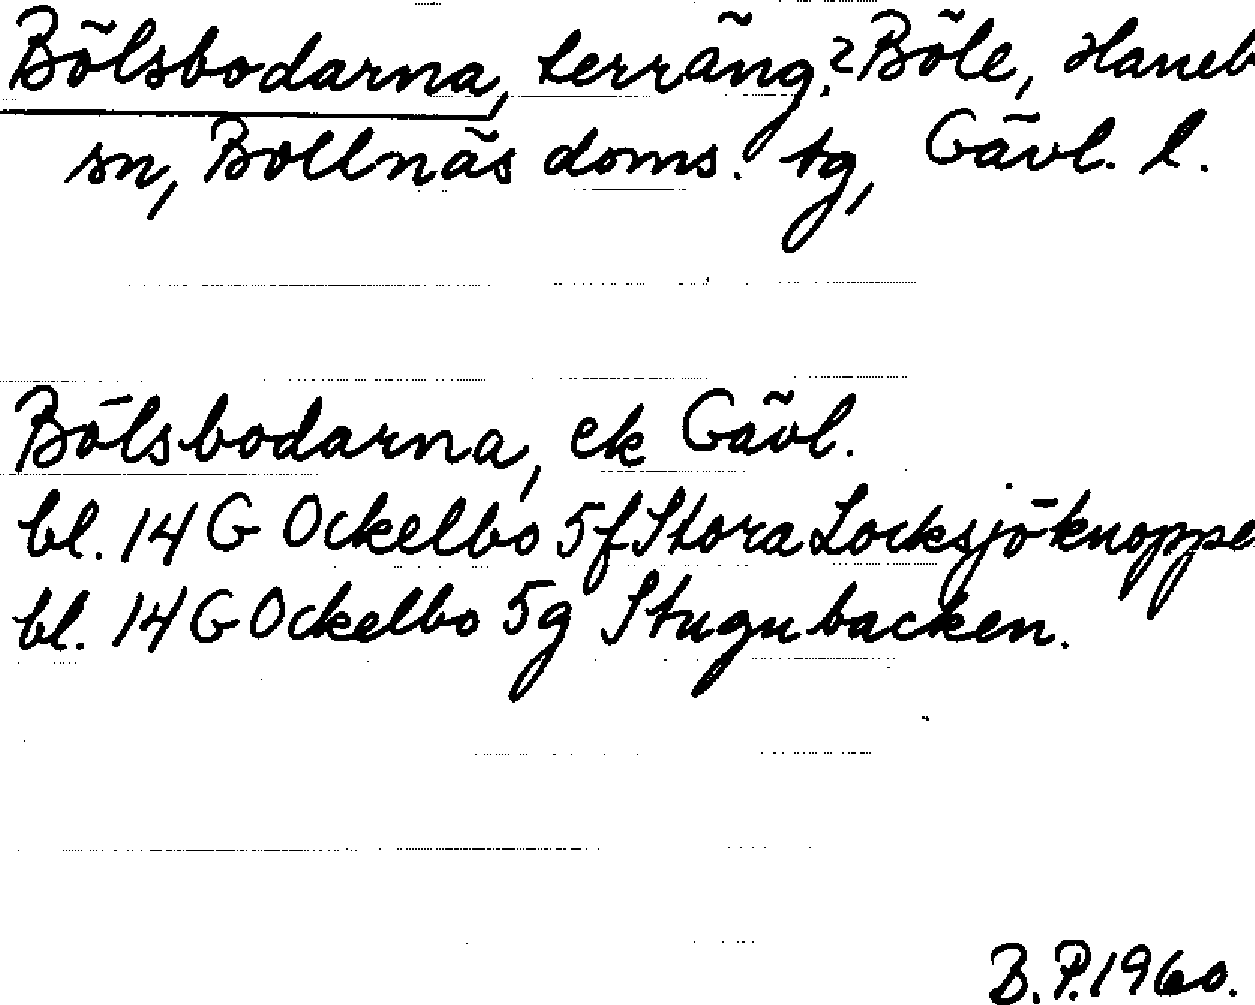 Bölsbodarna, terräng.? Böle, Haneb
sn, Bollnäs doms. tg, Gävl. l.
Bölsbodarna, ek Gävl.
bl. 14 G Ockelbo 5f Stora Locksjöknoppe
bl. 14 G Ockelbo 5g Stugubacken.
B.P. 1960.